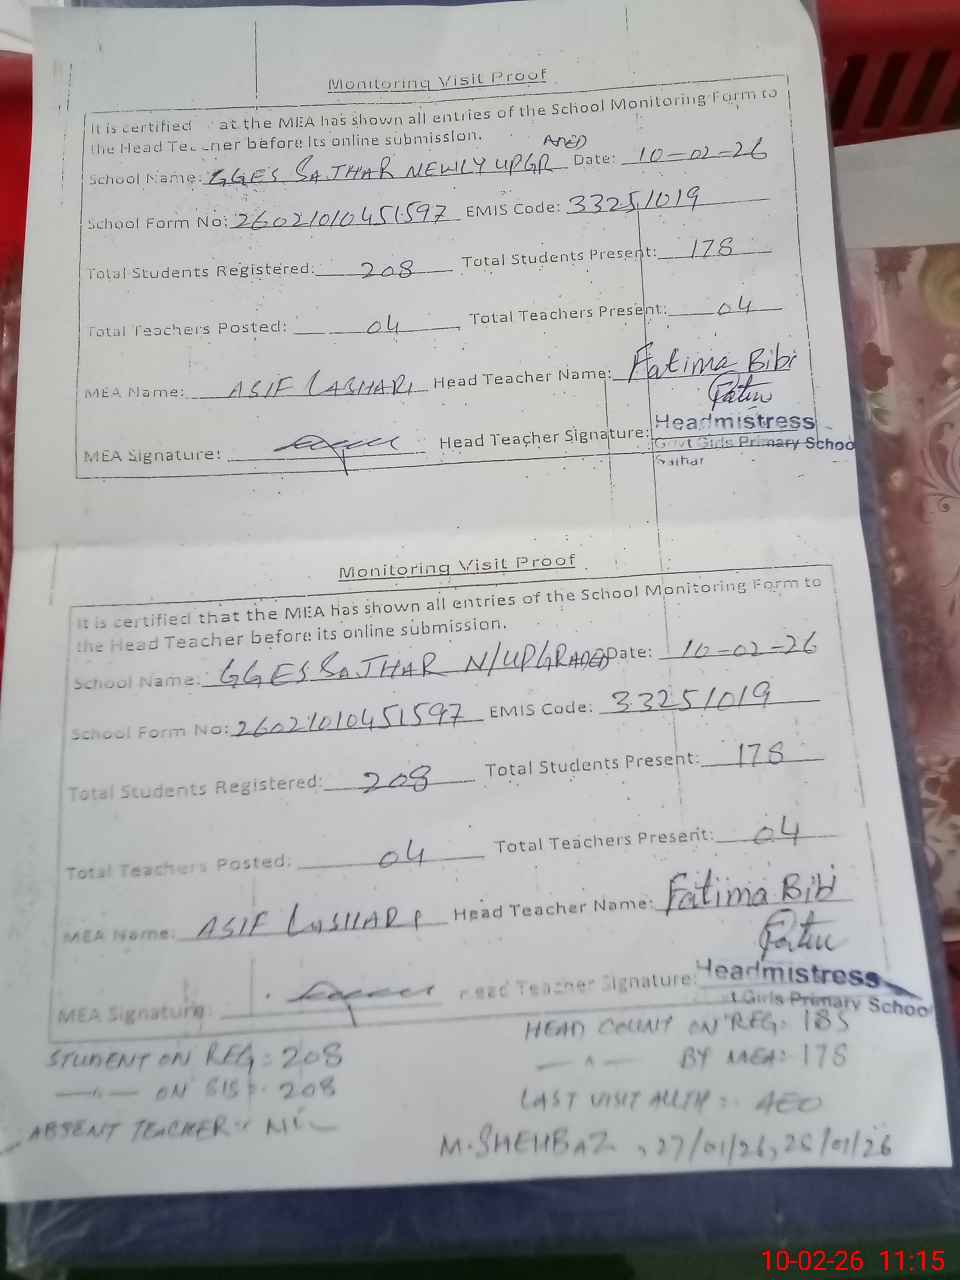 Monitoring Visit Proof
It is certified at the MEA has shown all entries of the School Monitoring Form to
the Head Teacher before its online submission.
School Name: GGES SATHAR NEWLY UPGRADED Date: 10-02-26
School Form No: 26021010451597 EMIS Code: 33251019
Total Students Registered: 208 Total Students Present: 178
Total Teachers Posted: 04 Total Teachers Present: 04
MEA Name: ASIF LASHARI Head Teacher Name: Fatima Bibi
MEA Signature: Head Teacher Signature:
Headmistress
Govt Girls Primary Schoo
Sathar
Monitoring Visit Proof
It is certified that the MEA has shown all entries of the School Monitoring Form to
the Head Teacher before its online submission.
School Name: GGES SATHAR N/UPGRADED Date: 10-02-26
School Form No: 26021010451597 EMIS Code: 33251019
Total Students Registered: 208 Total Students Present: 178
Total Teachers Posted: 04 Total Teachers Present: 04
MEA Name: ASIF LASHARI Head Teacher Name: Fatima Bibi
MEA Signature: Head Teacher Signature:
Headmistress
t Girls Primary Schoo
STUDENT ON REG: 208 HEAD COUNT ON REG: 185
—"— ON SIS: 208 —"— BY MEA: 178
ABSENT TEACHER: NIL LAST VISIT :- AEO
M. SHEHBAZ, 27/01/26, 28/01/26
10-02-26 11:15